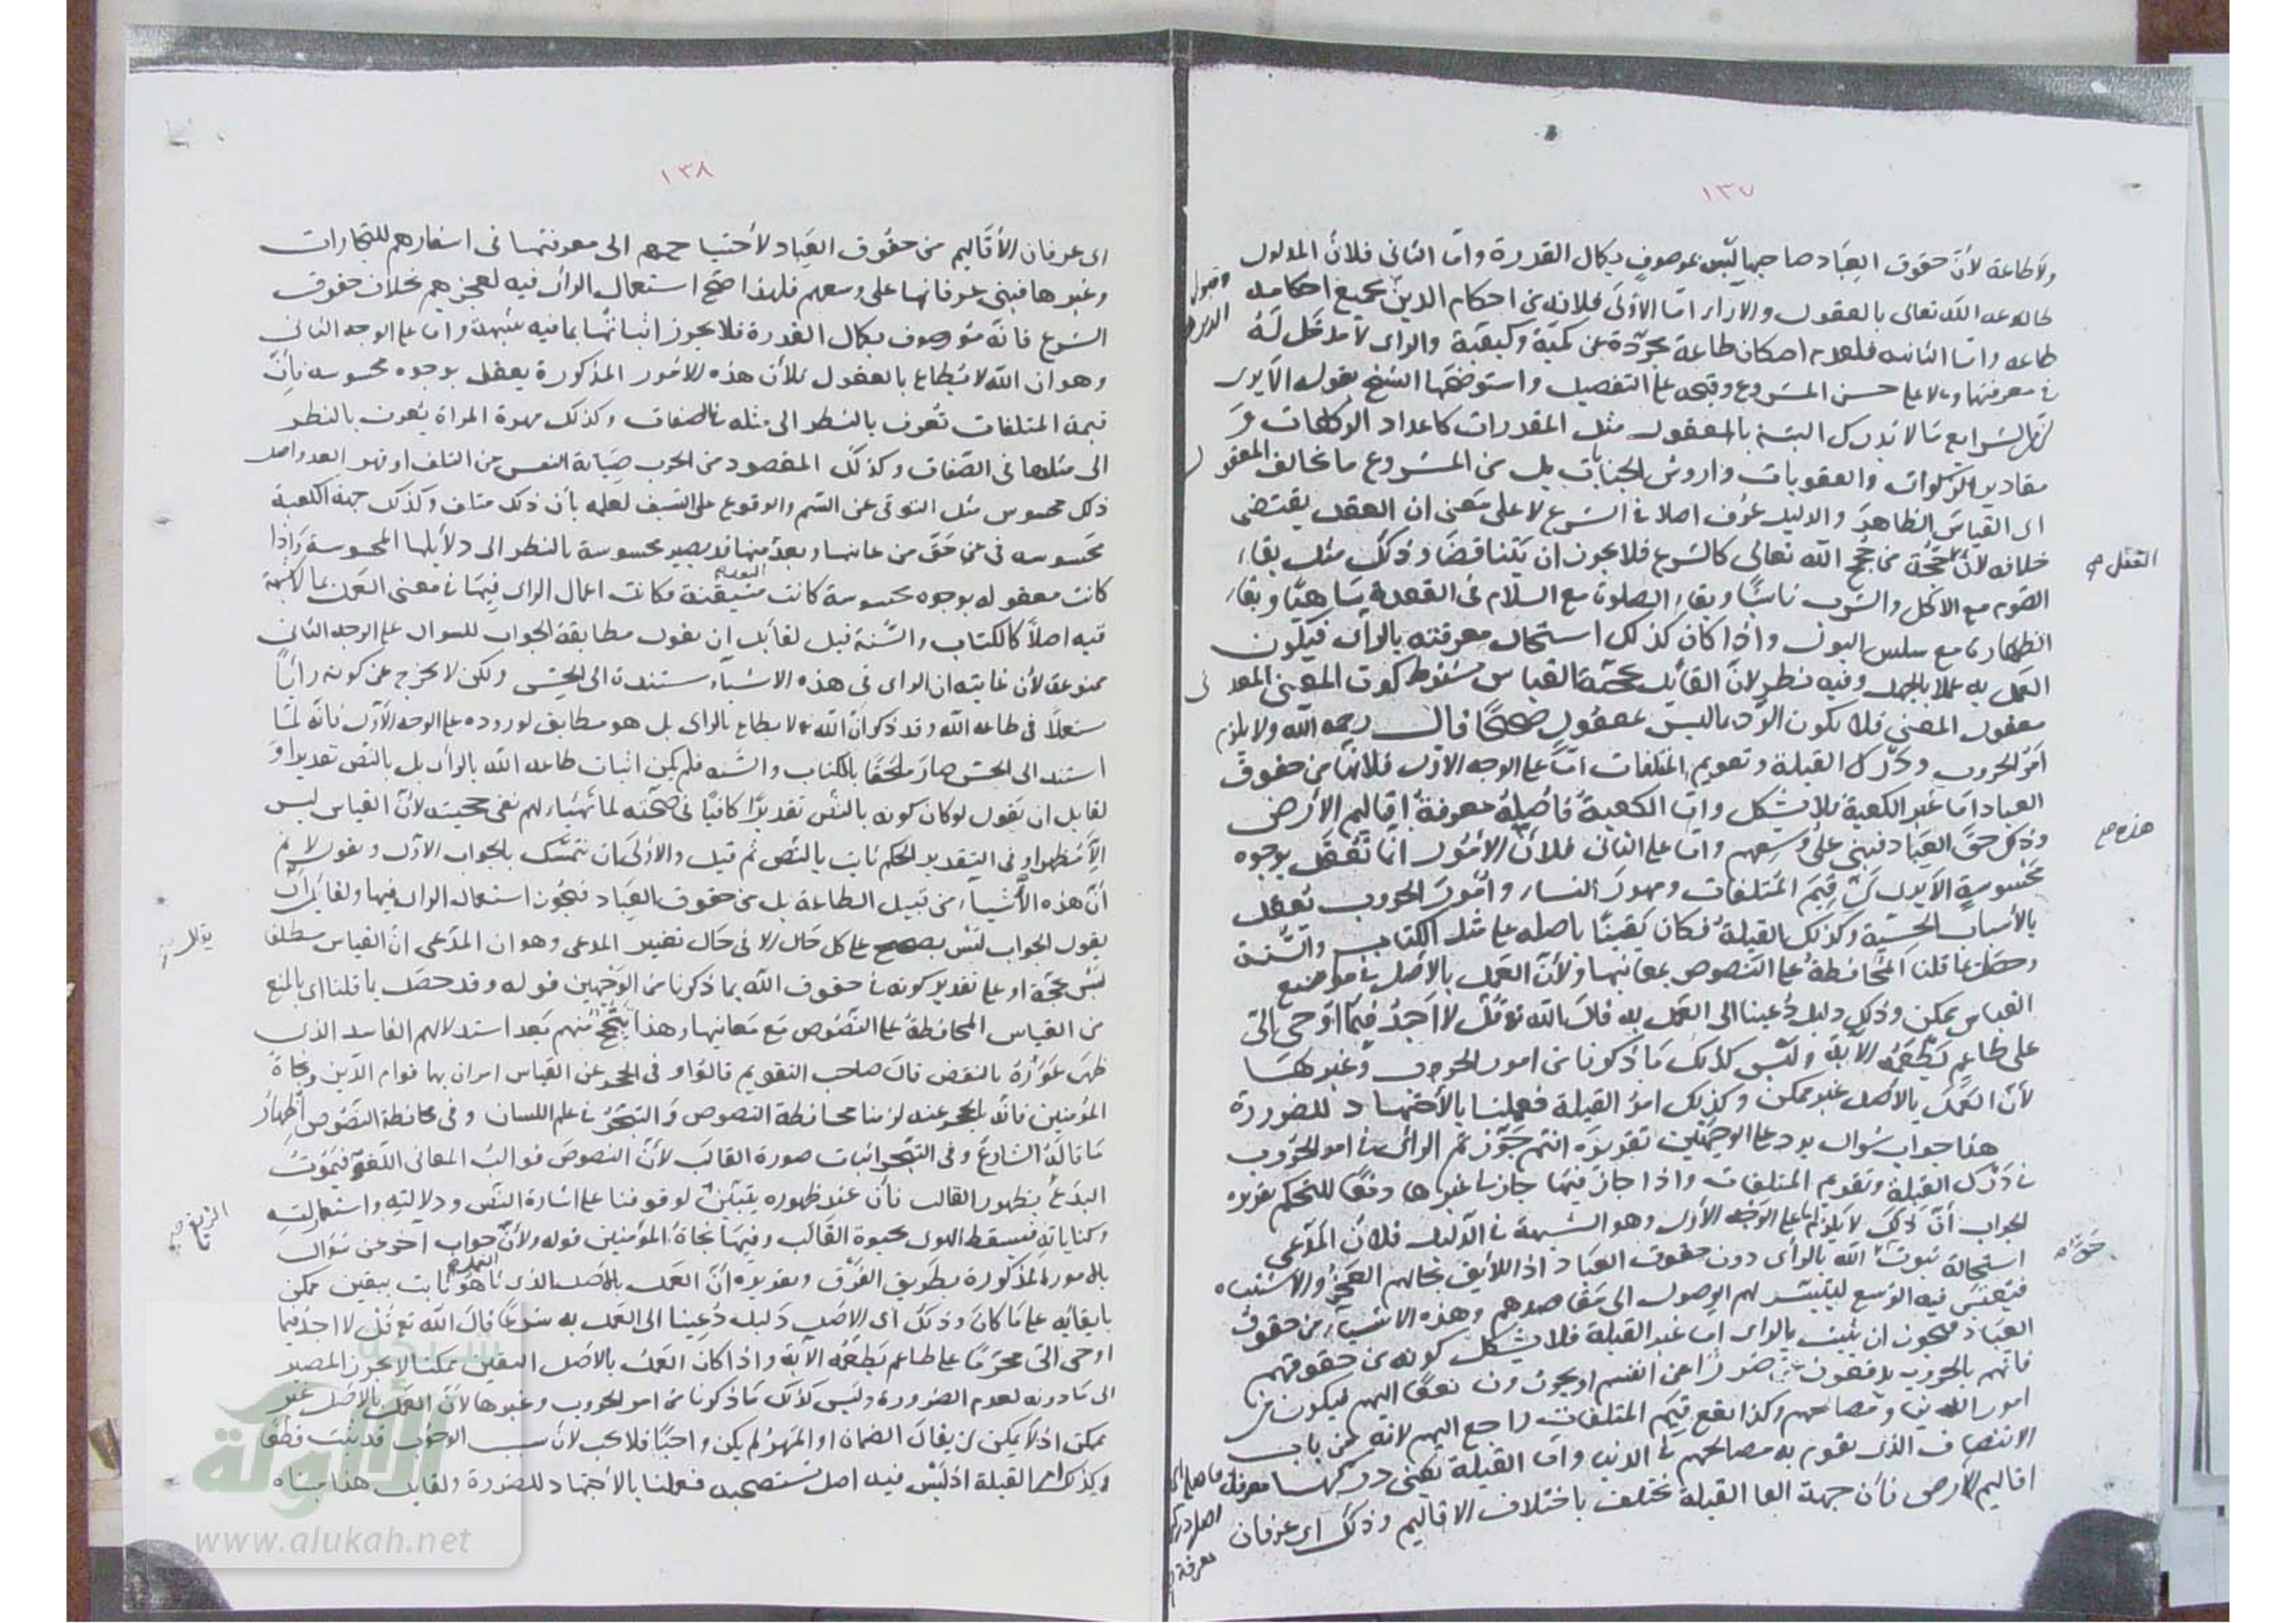 ١٣٧
ولا طاعة لأن حقوق العباد صاحبها ليس بموصوف بكمال القدرة واما الثاني فلان المدلول
طاعة الله تعالى بالعقول والاراء اما الأولى فلانه من احكام الدين بجميع احكامه
طاعه واما الثانيه فلعدم امكان طاعة مجردة عن كمية وكيفية والراى لا مدخل له
في معرفتها ولا على حسن المشروع وقبحه على التفصيل واستوضحها الشيخ بقوله الا يرى
ان الشرايع ما لا يدرك البتة بالعقول مثل المقدرات كاعداد الركعات و
مقادير الزكوات والعقوبات واروش الجنايات بل من المشروع ما يخالف المعقول
اى القياس الظاهر والدليل عرف اصلا في الشرع لا على معنى ان العقل يقتضى
خلافه لأن حجة من حجج الله تعالى كالشرع فلا يجوز ان يتناقضا وذلك مثل بقاء
الصوم مع الاكل والشرب ناسيا وبقاء الصلوة مع السلام في القعدة ساهيا وبقاء
الطهارة مع سلس البول واذا كان كذلك استحال معرفته بالراى فيكون
العمل به عملا بالجهل وفيه نظر لأن القائل بحجة القياس شرط كون المعنى المعد
معقول المعنى فلا يكون الرد بما ليس بمعقول صحيحا قال رحمه الله ولا يلزم
امر الحروب ودرك القبلة وتقويم المتلفات اما على الوجه الأول فلانها من حقوق
العباد اما غير الكعبة فلا يشكل واما الكعبة فاصله معرفة اقاليم الأرض
وذلك حق العباد فبنى على وسعهم واما على الثاني فلأن الأمور انما تعقل بوجوه
محسوسة الا يرى ان قيم المتلفات ومهور النساء وامور الحروب تعقل
بالأسباب الحسية وكذلك القبلة فكان يقينا باصله على مثل الكتاب والسنة
وحصل بما قلنا المحافظة على النصوص بمعانيها ولأن العمل بالأصل في موضع
القياس ممكن وذلك دليل دعينا الى العمل به قال الله تع قل لا اجد فيما اوحى الى
على طاعم يطعمه الآية وليس كذلك ما ذكرنا من امور الحروب وغيرها
لأن العمل بالأصل غير ممكن وكذلك امر القبلة فعملنا بالأجتهاد للضرورة
هذا جواب سؤال يرد على الوجهين تقريره انتم جوزتم الراى في امر الحروب
في درك القبلة وتقويم المتلفات واذا جاز فيها جاز في غيرها دفعا للتحكم تقرير
الجواب أن ذلك لا يلزم اما على الوجه الأول وهو الشبهة في الدليل فلأن المدعى
استحالة ثبوت الله بالرأى دون حقوق العباد اذ اللائق بحالهم العجز والاشتباه
فيعتبر فيه الوسع ليتيسر لهم الوصول الى مقاصدهم وهذه الاشياء من حقوق
العباد فيجوز ان يثبت بالراى اما غير القبلة فلا يشكل كونه من حقوقهم
فانهم بالحروب يدفعون ضررا عن انفسهم او يجرون نفعا اليهم فيكون من
امور الدنيا ومصالحهم وكذا نفع قيم المتلفات راجع اليهم لانه من باب
الانتصاف الذى يقوم به مصالحهم في الدنيا واما القبلة يعنى دركها معرفة
اقاليم الأرض فأن جهة القبلة تختلف باختلاف الاقاليم وذلك اى عرفان
العقل صح
هذه صح
حق الله
١٣٨
اى عرفان الأقاليم من حقوق العباد لأحتياجهم الى معرفتها في اسفارهم للتجارات
وغيرها فبنى عرفانها على وسعهم فلهذا صح استعمال الراى فيه لعجزهم بخلاف حقوق
الشرع فانه موصوف بكمال القدرة فلا يجوز اثباتها بما فيه شبهة واما على الوجه الثاني
وهو ان الله لا يطاع بالعقول فلأن هذه الامور المذكورة يعقل بوجوه محسوسه فأن
قيمة المتلفات تعرف بالنظر الى مثله في الصفات وكذلك مهرة المراة يعرف بالنظر
الى مثلها في الصفات وكذلك المقصود من الحرب صيانة النفس من التلف او قهر العدو واصل
ذلك محسوس مثل التوقى عن السم والوقوع على السيف لعلمه بأن ذلك متلف وكذلك جهة الكعبة
محسوسه في حق من عاينها وبعد منها قد يصير محسوسة بالنظر الى دلايلها المحسوسة واذا
كانت معقوله بوجوه محسوسة كانت متيقنة فكانت اعمال الراى فيها في معنى العمل بما لا شبهة
فيه اصلا كالكتاب والسنة قيل لقايل ان يقول مطابقة الجواب للسوال على الوجه الثاني
ممنوعة لأن غايته ان الراى في هذه الاشياء مستندة الى الحس ولكن لا يخرج عن كونه رايا
مستعملا في طاعة الله وقد ذكر أن الله لا يطاع بالراى بل هو مطابق لوروده على الوجه الأول فأنه لما
استند الى الحس صار ملحقا بالكتاب والسنه فلم يكن اثبات طاعه الله بالراى بل بالنص تقديرا و
لقايل ان يقول لو كان كونه بالنص تقديرا كافيا في صحته لما تهيأ لهم نفى حجيته لأن القياس ليس
الا مظهرا وفى التقدير الحكم ثابت بالنص ثم قيل والأولى ان نتمسك بالجواب الأول ونقول لا ثم
أن هذه الأشياء من قبيل الطاعة بل من حقوق العباد فيجوز استعمال الراى فيها ولقايل ان
يقول الجواب ليس بصحيح على كل حال الا في حال تغيير المدعى وهو ان المدعى ان القياس مطلقا
ليس بحجة او على تقدير كونه في حقوق الله بما ذكرنا من الوجهين قوله وقد حصل بما قلنا اى بالمنع
من القياس المحافظة على النصوص مع معانيها وهذا منهم بعد استدلالهم الفاسد الذى
ظهر عواره بالنقض قال صاحب التقويم قالوا وفى الحجر عن القياس امران بهما قوام الدين ونجاة
المؤمنين فانه بالحجر عنه لزمنا محافظة النصوص والتبحر في علم اللسان وفى محافظة النصوص اظهار
ما قاله الشارع وفى التبحر اثبات صورة القالب لأن النصوص قوالب المعانى اللغوية فيموت
البدع بظهور القالب فأن عند ظهوره يتبين لو قوفنا على اشارة النص ودلالته واستعارته
وكناياته فيسقط الهوى بحيوة القالب وفيها نجاة المؤمنين قوله ولأن جواب آخر عن سؤال
بالامور المذكورة بطريق الفرق وتقريره أن العمل بالأصل الذى هو ثابت بيقين ممكن
بابقائه على ما كان وذلك اى الاصل دليل دعينا الى العمل به شرعا قال الله تع قل لا اجد فيما
اوحى الى محرما على طاعم يطعمه الآية واذا كان العمل بالأصل اليقين ممكنا لا يجوز المصير
الى ما دونه لعدم الضرورة وليس كذلك ما ذكرنا من امر الحروب وغيرها لأن العمل بالاصل غير
ممكن اذ لا يمكن ان يقال الضمان او المهر لم يكن واجبا فلا يجب لأن سبب الوجوب قد ثبت قطعا
وكذلك امر القبلة اذ ليس فيه اصل نستصحبه فعملنا بالأجتهاد للضرورة ولقايل هذا مبناه
شبكة
الألوكة
www.alukah.net